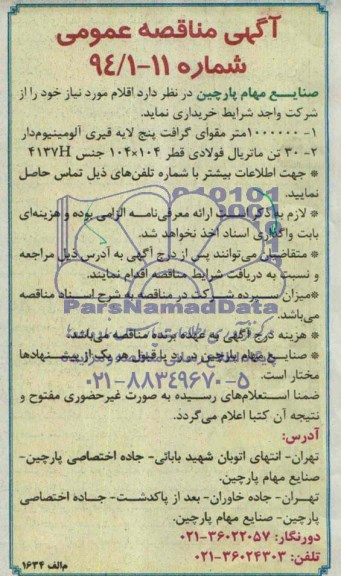 آگهی مناقصه عمومی
شماره ۱۱-۹۴/۱
صنایع مهام پارچین در نظر دارد اقلام مورد نیاز خود را از
شرکت واجد شرایط خریداری نماید.
۱- ۱۰۰۰۰۰۰متر مقوای گرافت پنج لایه قیری آلومینیوم‌دار
۲- ۳۰ تن ماتریال فولادی قطر ۱۰۴×۱۰۴ جنس ۴۱۳۷H
* جهت اطلاعات بیشتر با شماره تلفن‌های ذیل تماس حاصل
نمایید.
* لازم به ذکر است ارائه معرفی‌نامه الزامی بوده و هزینه‌ای
بابت واگذاری اسناد اخذ نخواهد شد.
* متقاضیان می‌توانند پس از درج آگهی به آدرس ذیل مراجعه
و نسبت به دریافت شرایط مناقصه اقدام نمایند.
*میزان سپرده شرکت در مناقصه به شرح اسناد مناقصه
می‌باشد.
ParsNamadData
* هزینه درج آگهی به عهده برنده مناقصه می‌باشد.
* صنایع مهام پارچین در رد یا قبول هر یک از پیشنهادها
مختار است.
۰۲۱-۸۸۳۴۹۶۷۰-۵
ضمنا استعلام‌های رسیده به صورت غیرحضوری مفتوح و
نتیجه آن کتبا اعلام می‌گردد.
آدرس:
تهران- انتهای اتوبان شهید بابائی- جاده اختصاصی پارچین-
صنایع مهام پارچین.
تهران- جاده خاوران- بعد از پاکدشت- جاده اختصاصی
پارچین- صنایع مهام پارچین.
دورنگار: ۳۶۰۲۲۰۵۷-۰۲۱
تلفن: ۳۶۰۲۴۳۰۳-۰۲۱
م‌الف ۱۶۳۴